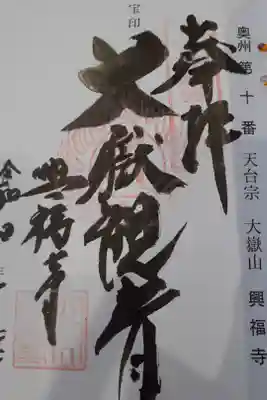 奥州 第十番 天台宗 大嶽山 興福寺
奉拝
宝印
大嶽観音
興福寺
令和